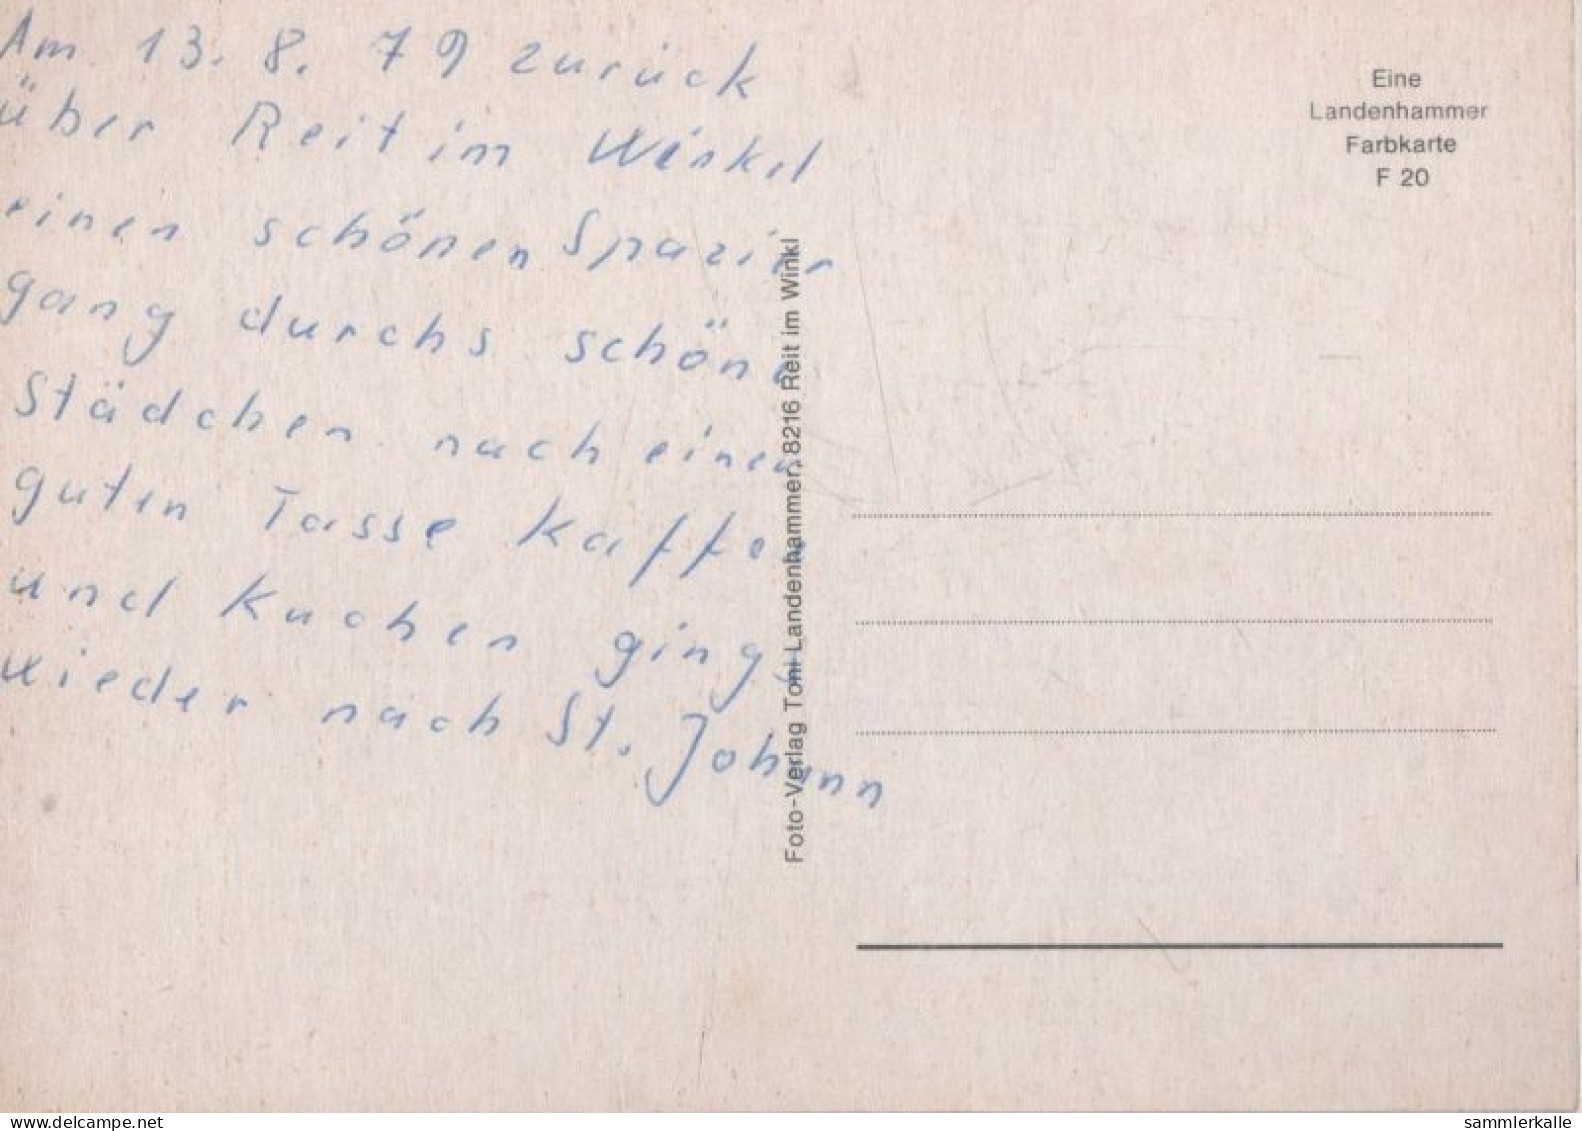 Am 13. 8. 79 zurück
über Reit im Winkel
einen schönen Spazier
gang durchs schöne
Städchen nach einen
guten Tasse Kaffee
und Kuchen ging
wieder nach St. Johann
Foto-Verlag Toni Landenhammer, 8216 Reit im Winkl
Eine
Landenhammer
Farbkarte
F 20
www.delcampe.net
sammlerkalle